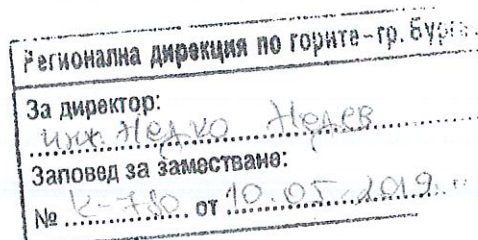 Регионална дирекция по горите-гр. Бургас
За директор:
инж. Недко Недев
Заповед за заместване:
№ К-780 от 10.05.2019г.